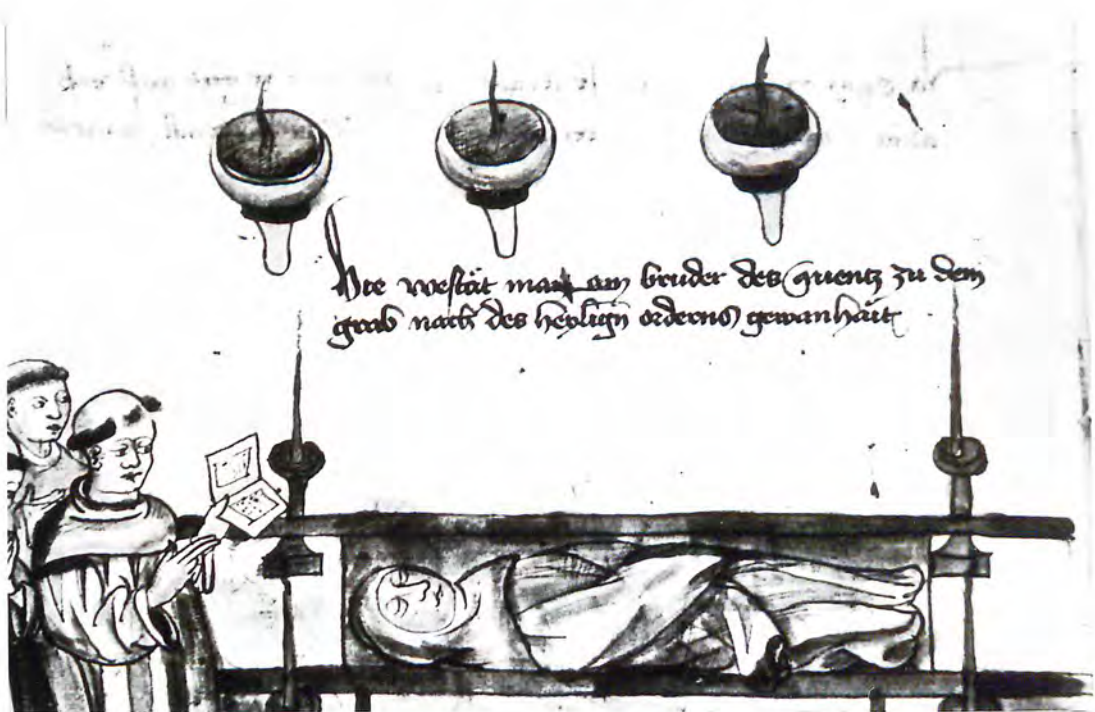 Hie westät man ain bruder des ꝯuentz zu dem
grab nach des heyligñ orderns gewanhait